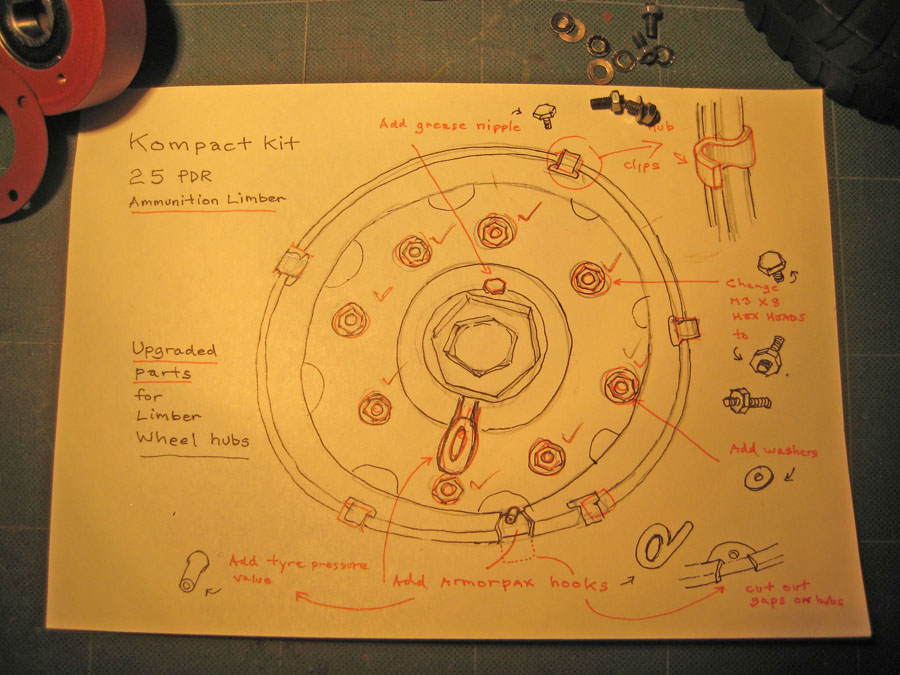 Kompact Kit
25 PDR
Ammunition Limber
Upgraded
parts
for
Limber
Wheel hubs
Add grease nipple
Hub
clips
Change
M3 X 8
HEX HEADS
to
Add washers
Add tyre pressure
valve
Add Armorpax hooks
cut out
gaps on hubs